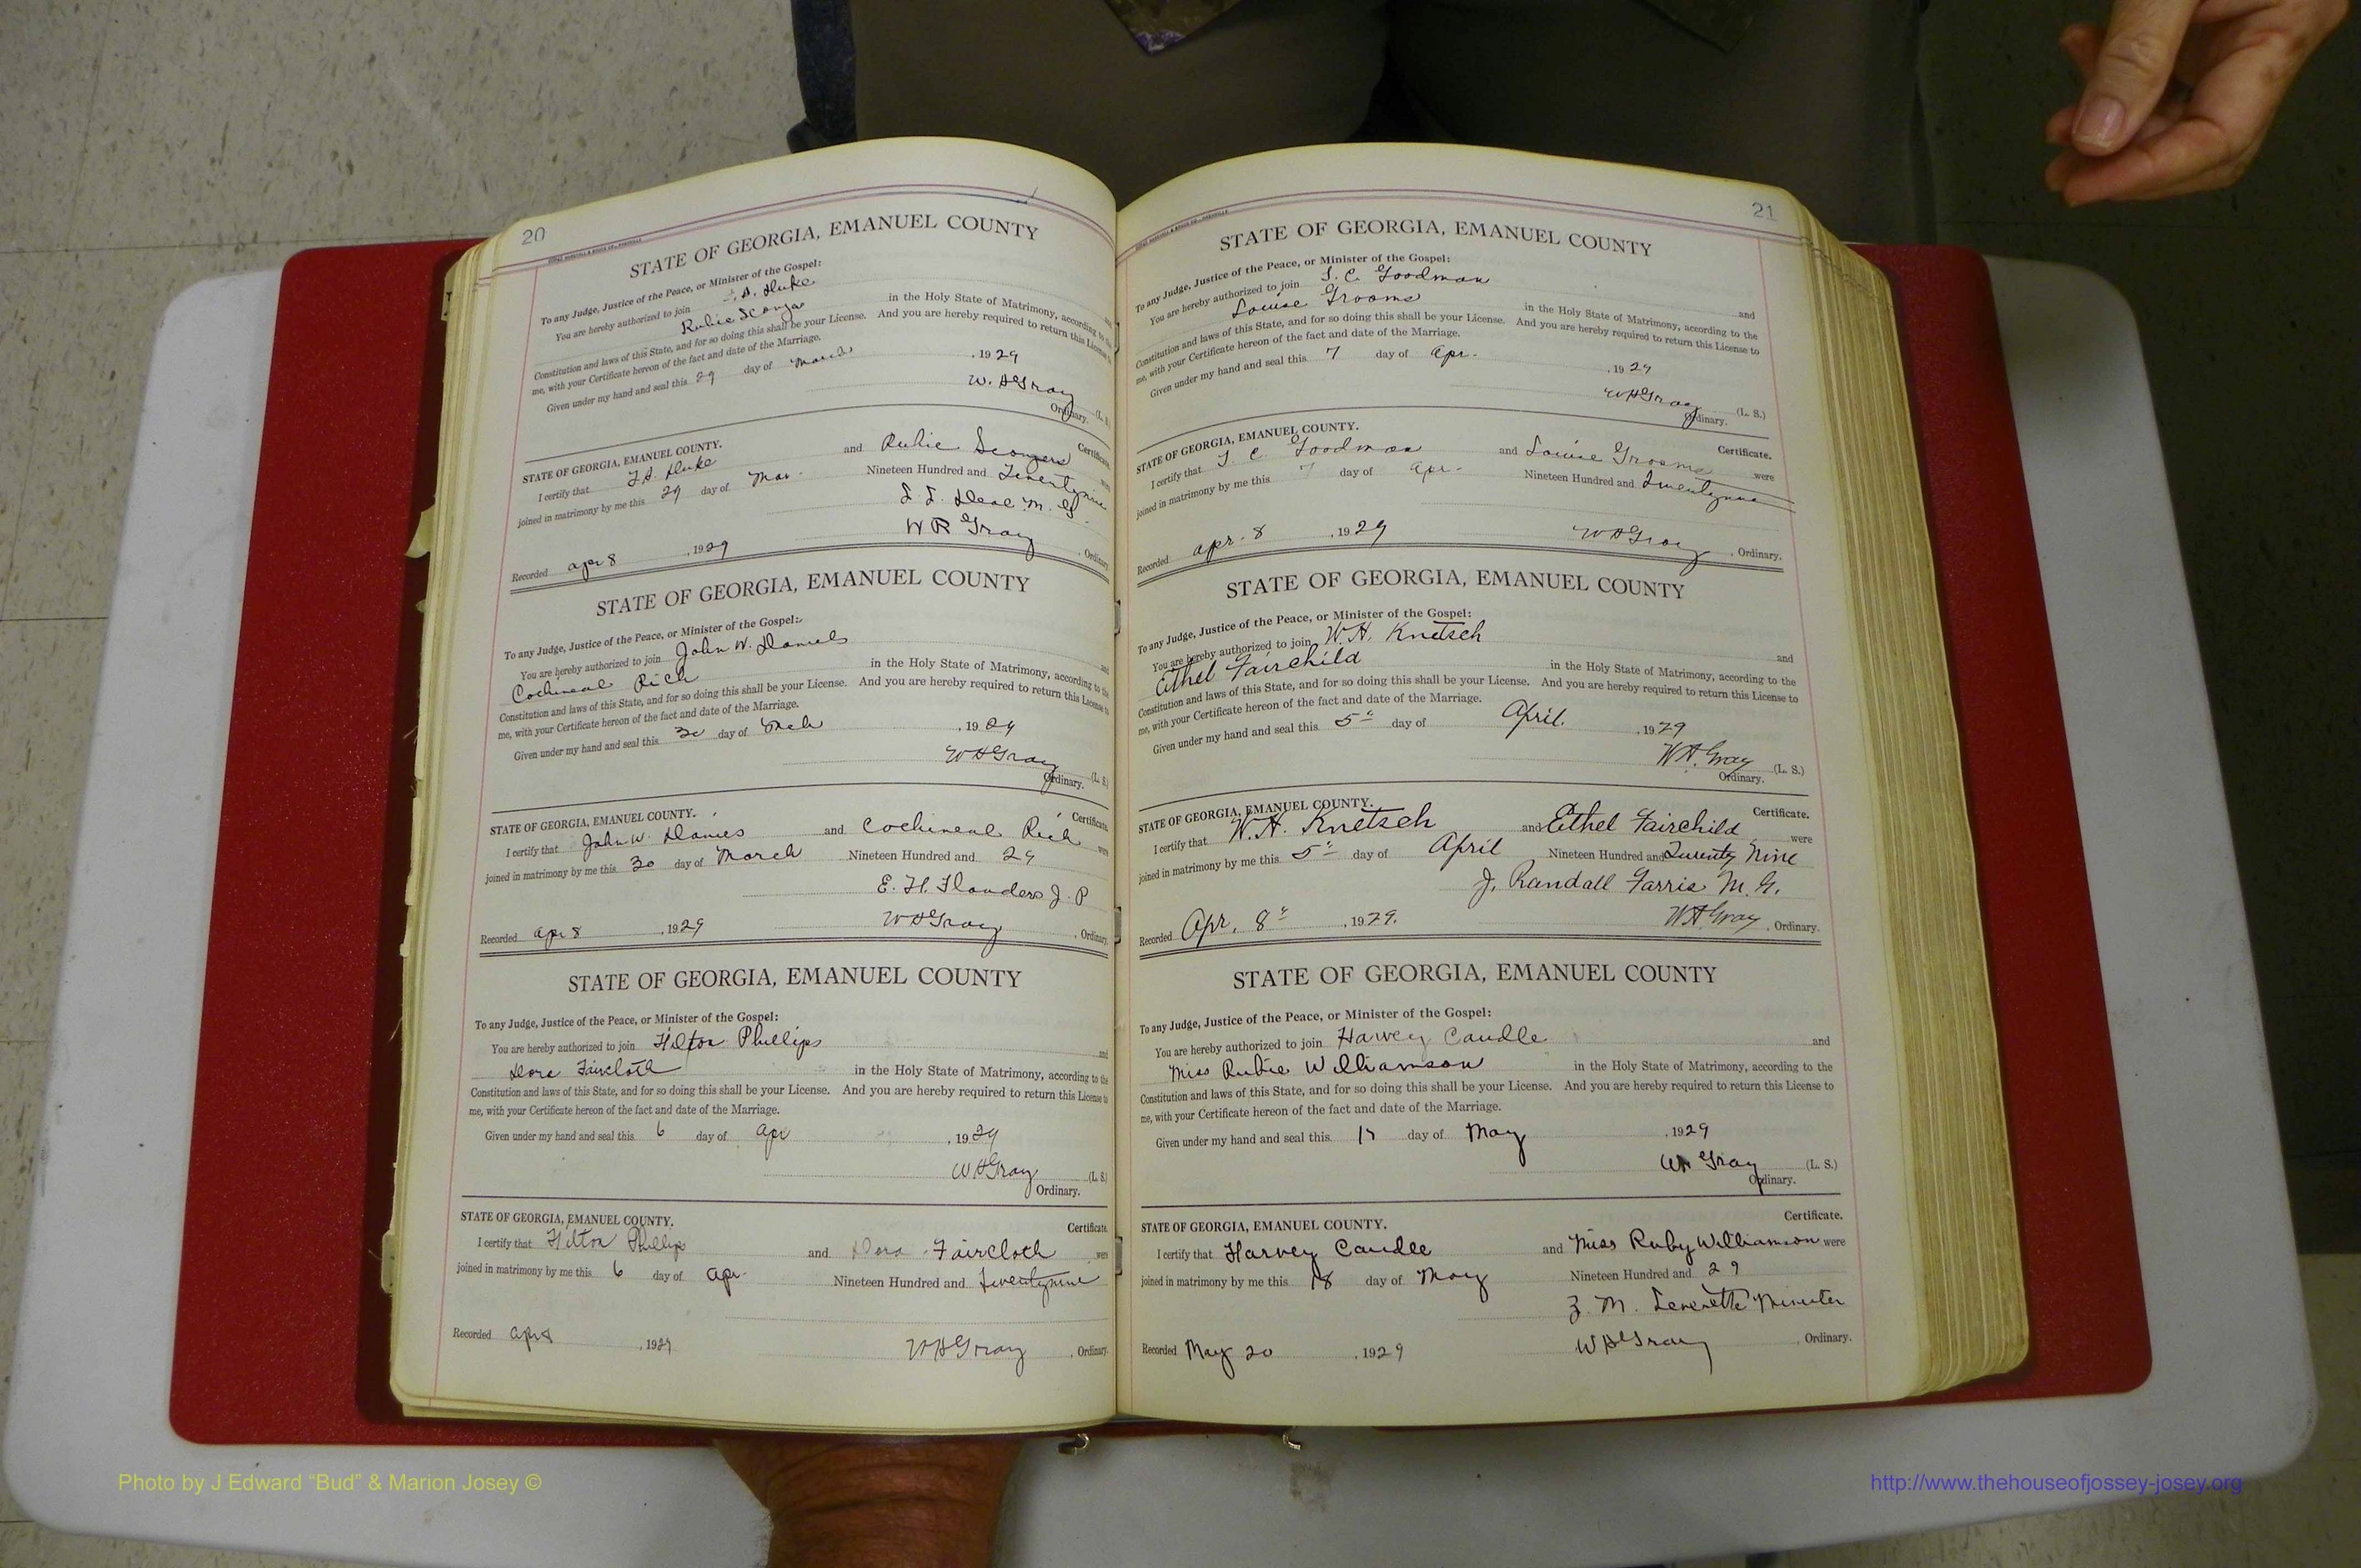 20
STATE OF GEORGIA, EMANUEL COUNTY
To any Judge, Justice of the Peace, or Minister of the Gospel:
You are hereby authorized to join Duke and
Rubie in the Holy State of Matrimony, according to the
Constitution and laws of this State, and for so doing this shall be your License. And you are hereby required to return this License to
me, with your Certificate hereon of the fact and date of the Marriage.
Given under my hand and seal this 29 day of March, 1929
W. H Gray (L. S.)
Ordinary.
STATE OF GEORGIA, EMANUEL COUNTY. Certificate.
I certify that Duke and Rubie were
joined in matrimony by me this 29 day of Mar. Nineteen Hundred and Twentynine
M. G.
Gray
Recorded apr 8, 1929, Ordinary
STATE OF GEORGIA, EMANUEL COUNTY
To any Judge, Justice of the Peace, or Minister of the Gospel:
You are hereby authorized to join John W. Daniels and
Cochineal Rich in the Holy State of Matrimony, according to the
Constitution and laws of this State, and for so doing this shall be your License. And you are hereby required to return this License to
me, with your Certificate hereon of the fact and date of the Marriage.
Given under my hand and seal this 30 day of Mch, 1929
W H Gray (L. S.)
Ordinary.
STATE OF GEORGIA, EMANUEL COUNTY. Certificate.
I certify that John W. and Cochineal Rich were
joined in matrimony by me this 30 day of March Nineteen Hundred and 29
E. H. Flanders J. P
Recorded apr 8, 1929 W H Gray, Ordinary
STATE OF GEORGIA, EMANUEL COUNTY
To any Judge, Justice of the Peace, or Minister of the Gospel:
You are hereby authorized to join Hilton Phillips and
Dora Faircloth in the Holy State of Matrimony, according to the
Constitution and laws of this State, and for so doing this shall be your License. And you are hereby required to return this License to
me, with your Certificate hereon of the fact and date of the Marriage.
Given under my hand and seal this 6 day of apr, 1929
W H Gray (L. S.)
Ordinary.
STATE OF GEORGIA, EMANUEL COUNTY. Certificate.
I certify that Hilton Phillips and Dora Faircloth were
joined in matrimony by me this 6 day of apr. Nineteen Hundred and Twentynine
Recorded apr 8, 1929 W H Gray, Ordinary.
21
STATE OF GEORGIA, EMANUEL COUNTY
To any Judge, Justice of the Peace, or Minister of the Gospel:
You are hereby authorized to join C. Goodman and
Louise Grooms in the Holy State of Matrimony, according to the
Constitution and laws of this State, and for so doing this shall be your License. And you are hereby required to return this License to
me, with your Certificate hereon of the fact and date of the Marriage.
Given under my hand and seal this 7 day of apr., 1929
W H Gray (L. S.)
Ordinary.
STATE OF GEORGIA, EMANUEL COUNTY. Certificate.
I certify that C Goodman and Louise Grooms were
joined in matrimony by me this 7 day of apr. Nineteen Hundred and Twentynine
Recorded apr. 8, 1929 W H Gray, Ordinary.
STATE OF GEORGIA, EMANUEL COUNTY
To any Judge, Justice of the Peace, or Minister of the Gospel:
You are hereby authorized to join W. H. Knetsch and
Ethel Fairchild in the Holy State of Matrimony, according to the
Constitution and laws of this State, and for so doing this shall be your License. And you are hereby required to return this License to
me, with your Certificate hereon of the fact and date of the Marriage.
Given under my hand and seal this 5" day of April, 1929
W H. Gray (L. S.)
Ordinary.
STATE OF GEORGIA, EMANUEL COUNTY. Certificate.
I certify that W. H. Knetsch and Ethel Fairchild were
joined in matrimony by me this 5" day of April Nineteen Hundred and Twenty Nine
J. Randall Farris M. G.
Recorded Apr. 8", 1929. W H Gray, Ordinary.
STATE OF GEORGIA, EMANUEL COUNTY
To any Judge, Justice of the Peace, or Minister of the Gospel:
You are hereby authorized to join Harvey Caudle and
Miss Rubie Williamson in the Holy State of Matrimony, according to the
Constitution and laws of this State, and for so doing this shall be your License. And you are hereby required to return this License to
me, with your Certificate hereon of the fact and date of the Marriage.
Given under my hand and seal this day of May, 1929
W H Gray (L. S.)
Ordinary.
STATE OF GEORGIA, EMANUEL COUNTY. Certificate.
I certify that Harvey Caudle and Miss Ruby Williamson were
joined in matrimony by me this 18 day of May Nineteen Hundred and 29
Z. M. Leverette Minister
Recorded May 20, 1929 W H Gray, Ordinary.
Photo by J Edward “Bud” & Marion Josey ©
http://www.thehouseofjossey-josey.org